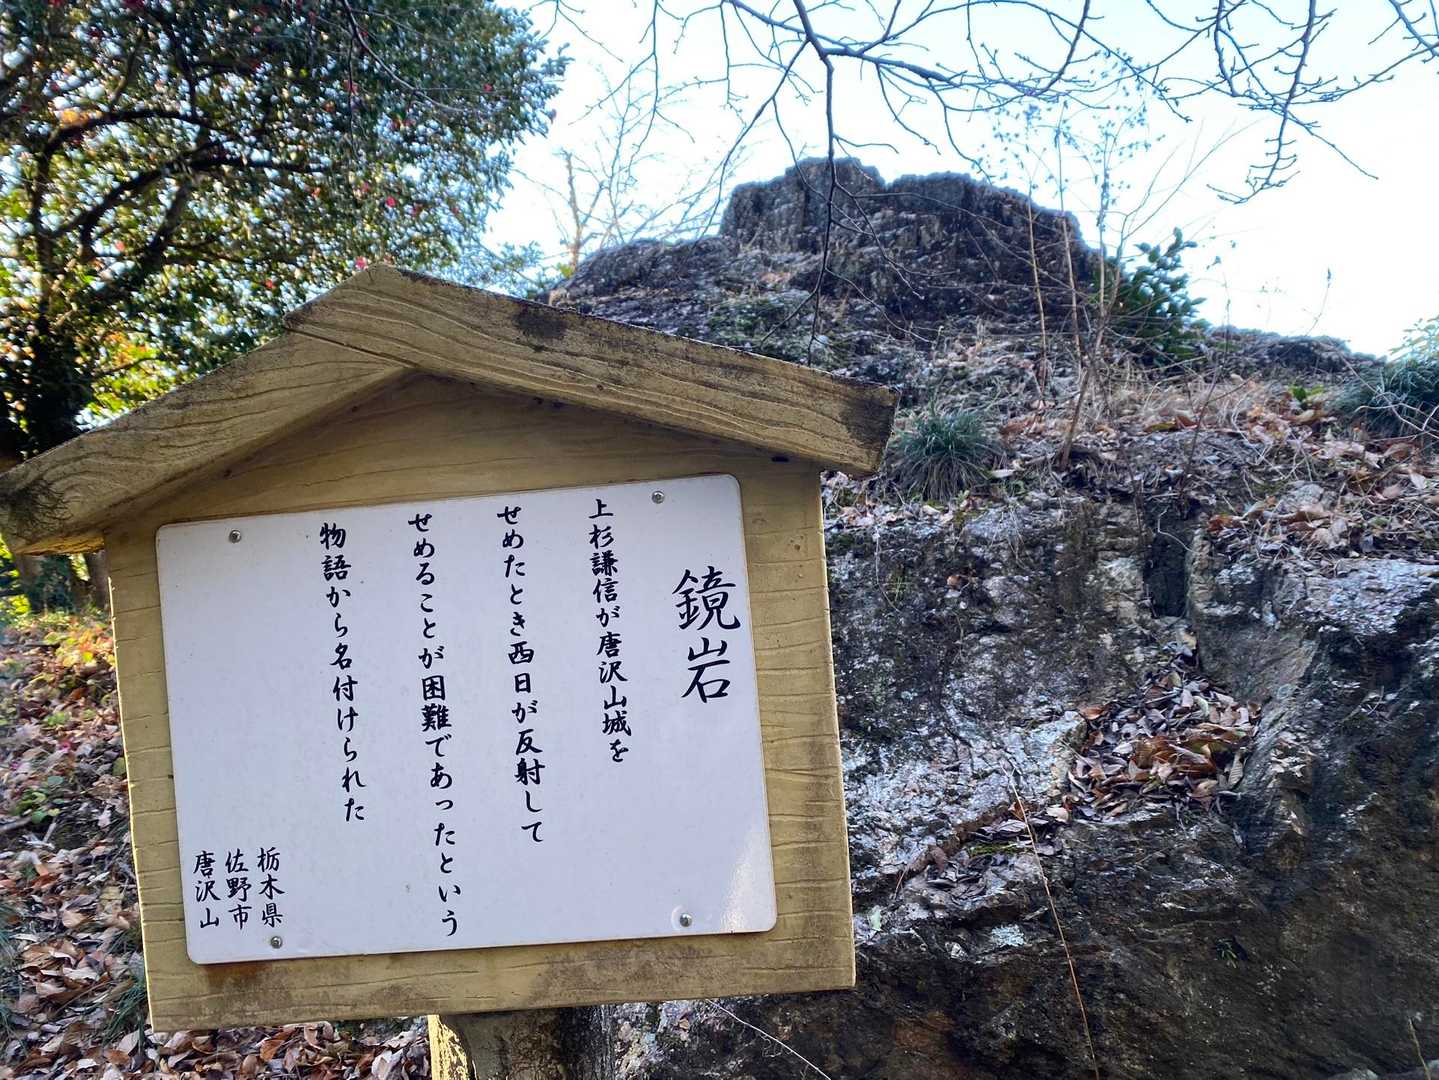 鏡岩
上杉謙信が唐沢山城を
せめたとき西日が反射して
せめることが困難であったという
物語から名付けられた
栃木県
佐野市
唐沢山